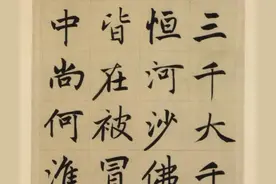 三千大千
恒河沙佛
皆在被冒
中尚何淮